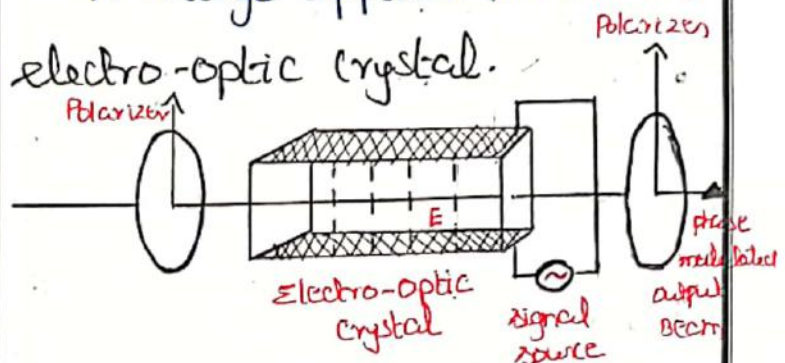 electro-optic Crystal.
Polarizer
Polarizer
E
Electro-Optic
Crystal
signal
source
phase
modulated
output
Beam